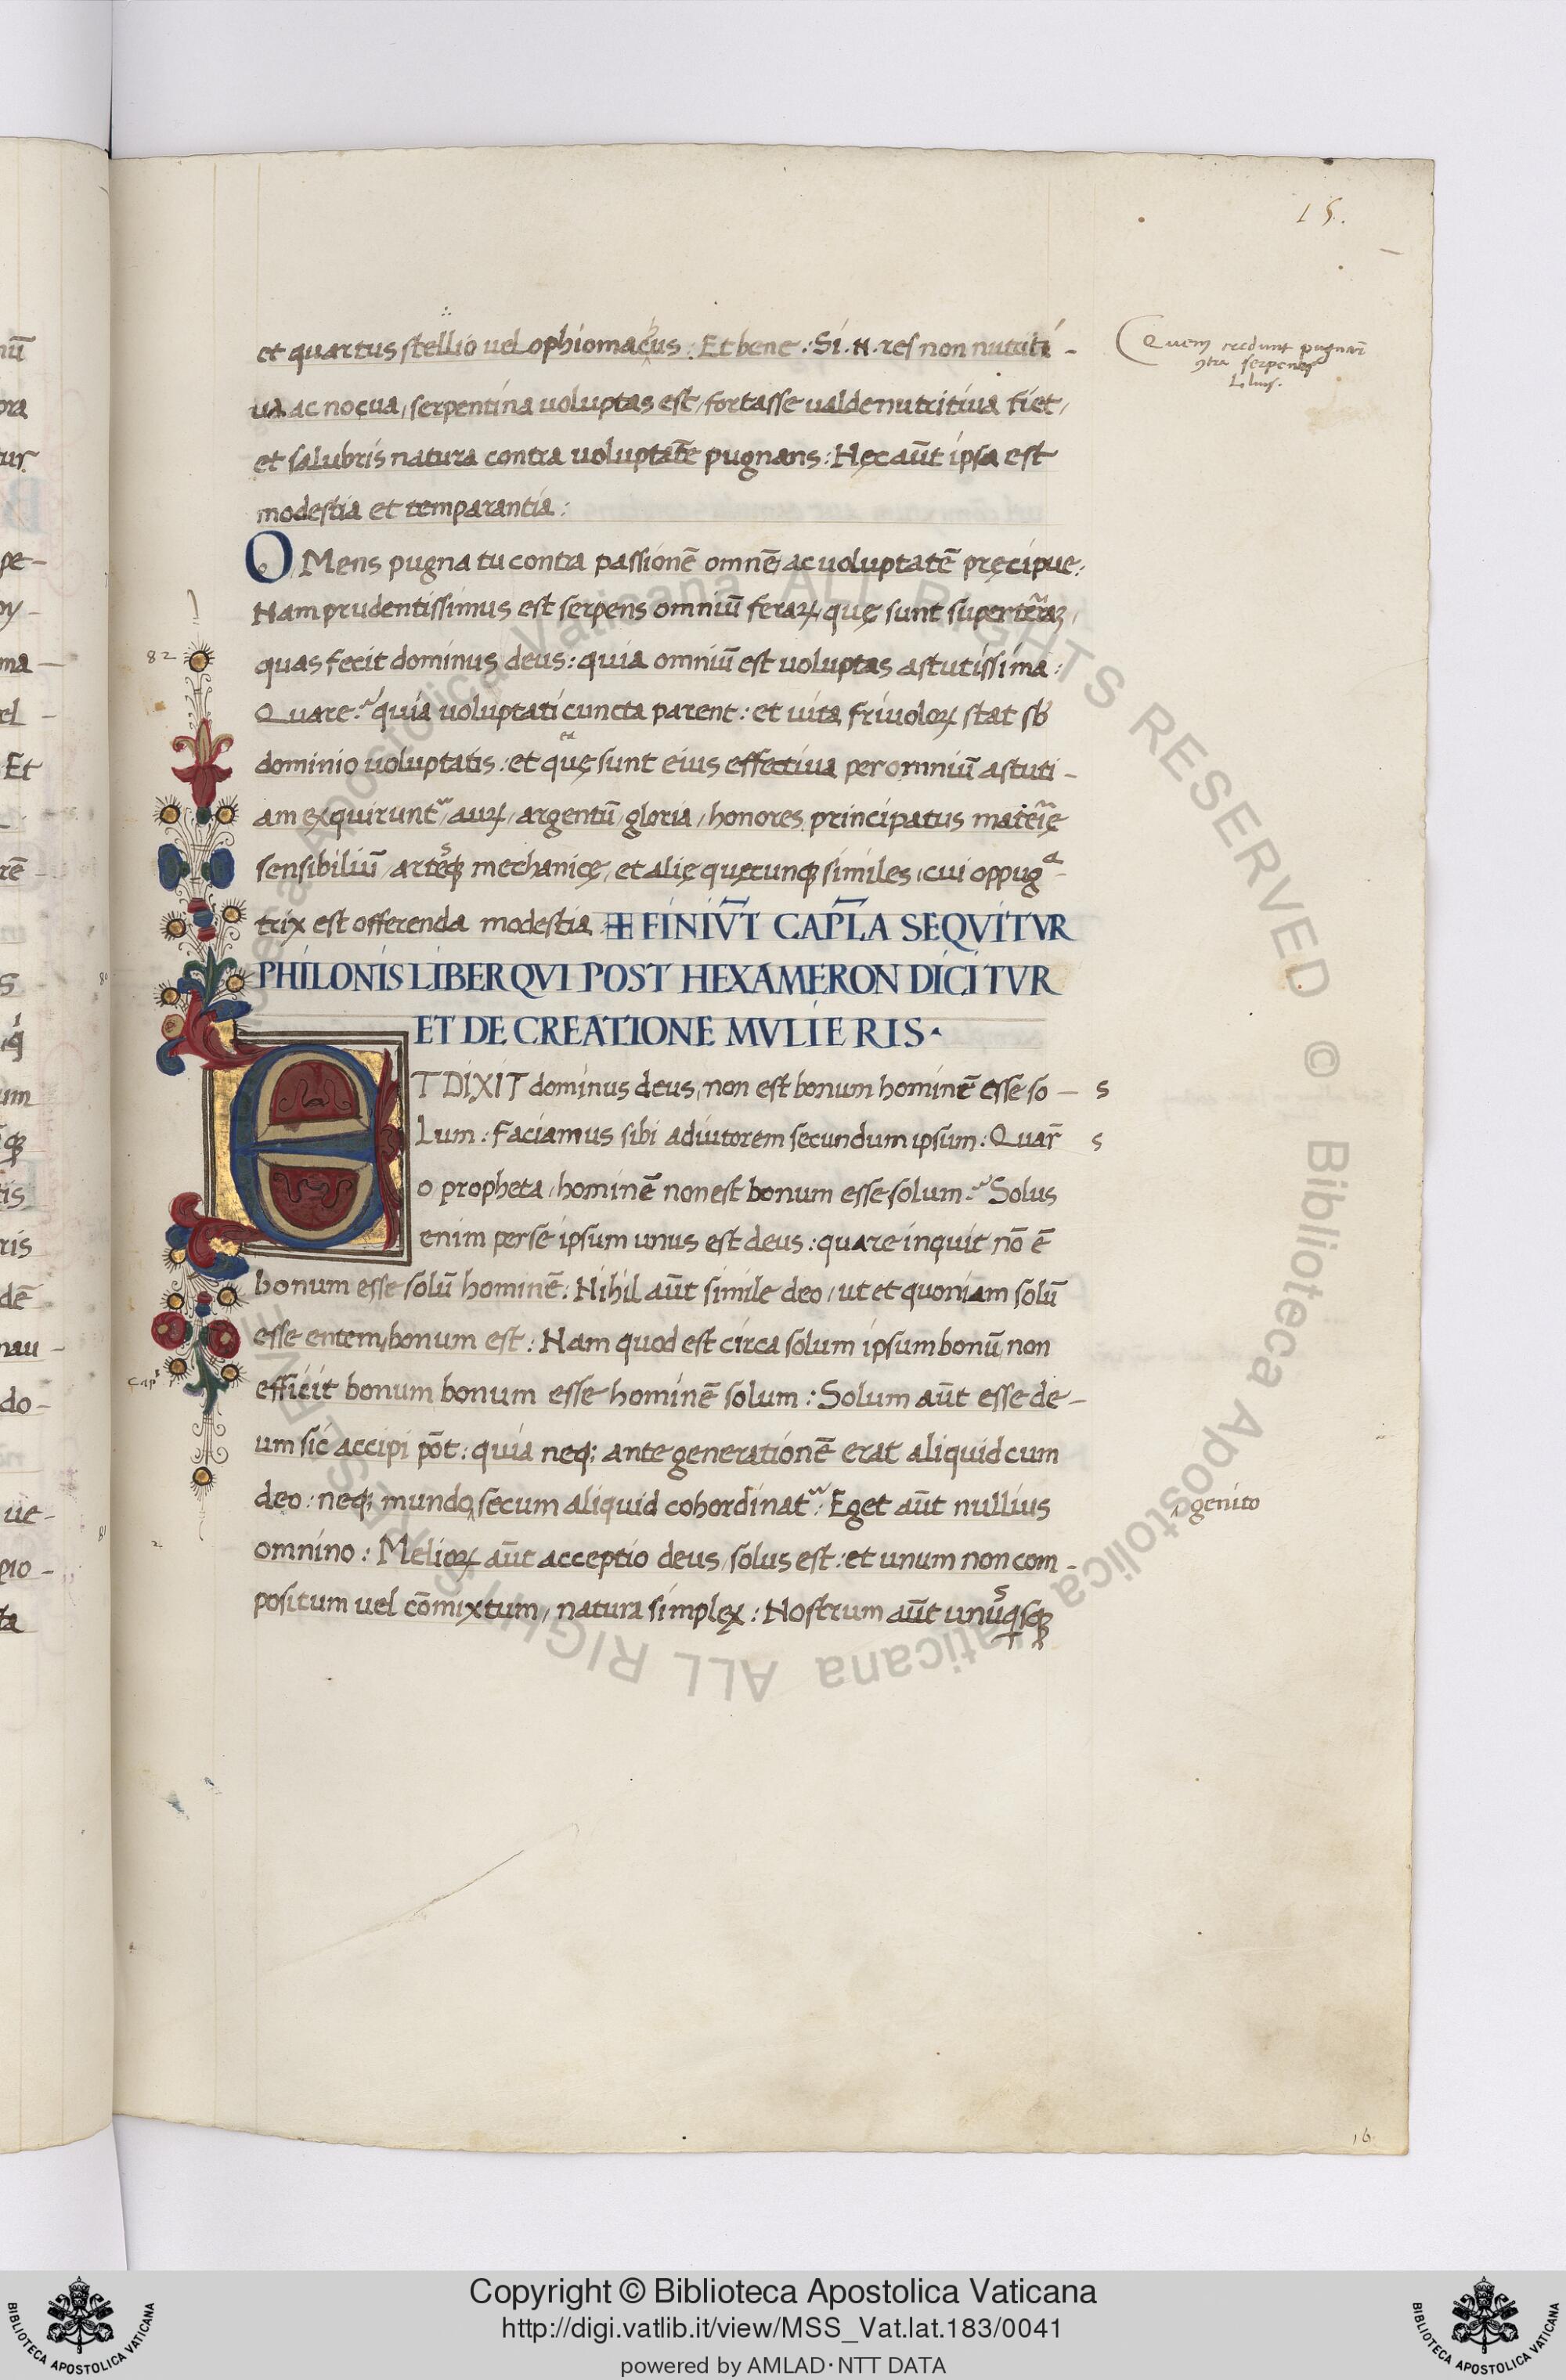 15.
et quartus stellio uel ophiomacus : Et bene : Si .n. res non nutriti -
ua ac nocua, serpentina uoluptas est, fortasse ualde nutritiua fiet,
et salubris natura contra uoluptatē pugnans : Hęc aūt ipsa est
modestia et temparantia :
O Mens pugna tu contra passionē omnē, ac uoluptatē pręcipue :
Nam prudentissimus est serpens omniū feraꝝ, quę sunt super terraꝫ,
quas fecit dominus deus : quia omniū est uoluptas astutissima :
Quare ? quia uoluptati cuncta parent : et uita friuoloꝝ stat sb
dominio uoluptatis : et quę sunt eius effectiua per omniū astuti -
am exquirunt᷑, auꝝ, argentū, gloria, honores, principatus, materię
sensibiliū, artesꝙ mechanicę, et alię quęcunꝙ similes, cui oppugᵃ-
trix est offerenda modestia FINIV̄T CAPL̄A SEQVITVR
PHILONIS LIBER QVI POST HEXAMERON DICITVR
ET DE CREATIONE MVLIERIS.
ET DIXIT dominus deus, non est bonum hominē esse so -
lum : Faciamus sibi adiutorem secundum ipsum : Quar̄
o propheta, hominē non est bonum esse solum ? Solus
enim per se ipsum unus est deus : quare inquit nō ē
bonum esse solū hominē : Nihil aūt simile deo, ut et quoniam solū
esse entem, bonum est : Nam quod est circa solum ipsum bonū, non
efficit bonum bonum esse hominē solum : Solum aūt esse de -
um sic accipi pōt : quia neq; ante generationē erat aliquid cum
deo : neq; mundo secum aliquid cohordinat᷑ : Eget aūt nullius
omnino : Melioꝝ aūt acceptio deus solus est : et unum non com -
positum uel cōmixtum, natura simplex : Nostrum aūt unūqsꝙ
Quem credunt pugnar̄
ꝯtra serpentes
Lilius.
82
s
s
Capˢ 1.
genito
2
16
Copyright © Biblioteca Apostolica Vaticana
http://digi.vatlib.it/view/MSS_Vat.lat.183/0041
powered by AMLAD·NTT DATA
BIBLIOTECA APOSTOLICA VATICANA
BIBLIOTECA APOSTOLICA VATICANA